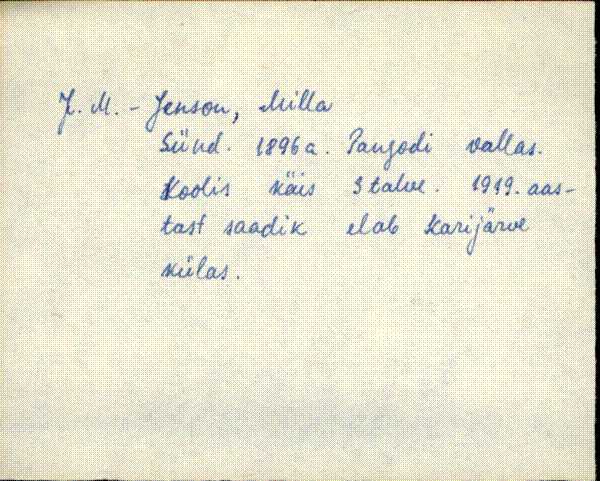 J. M. - Jenson, Milla
Sünd. 1896 a. Pangodi vallas.
Koolis käis 3 talve. 1919. aas-
tast saadik elab Karijärve
külas.